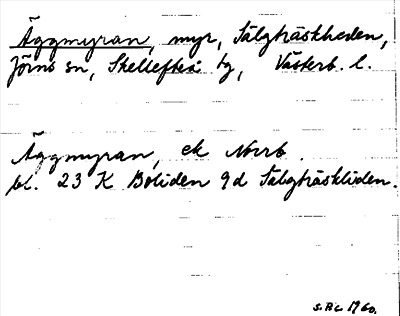 Äggmyran, myr, Sälgträskheden,
Jörns sn, Skellefteå tg, Västerb. l.
Äggmyran, ek Norrb.
bl. 23 K Boliden 9d Sälgträskliden.
1960.